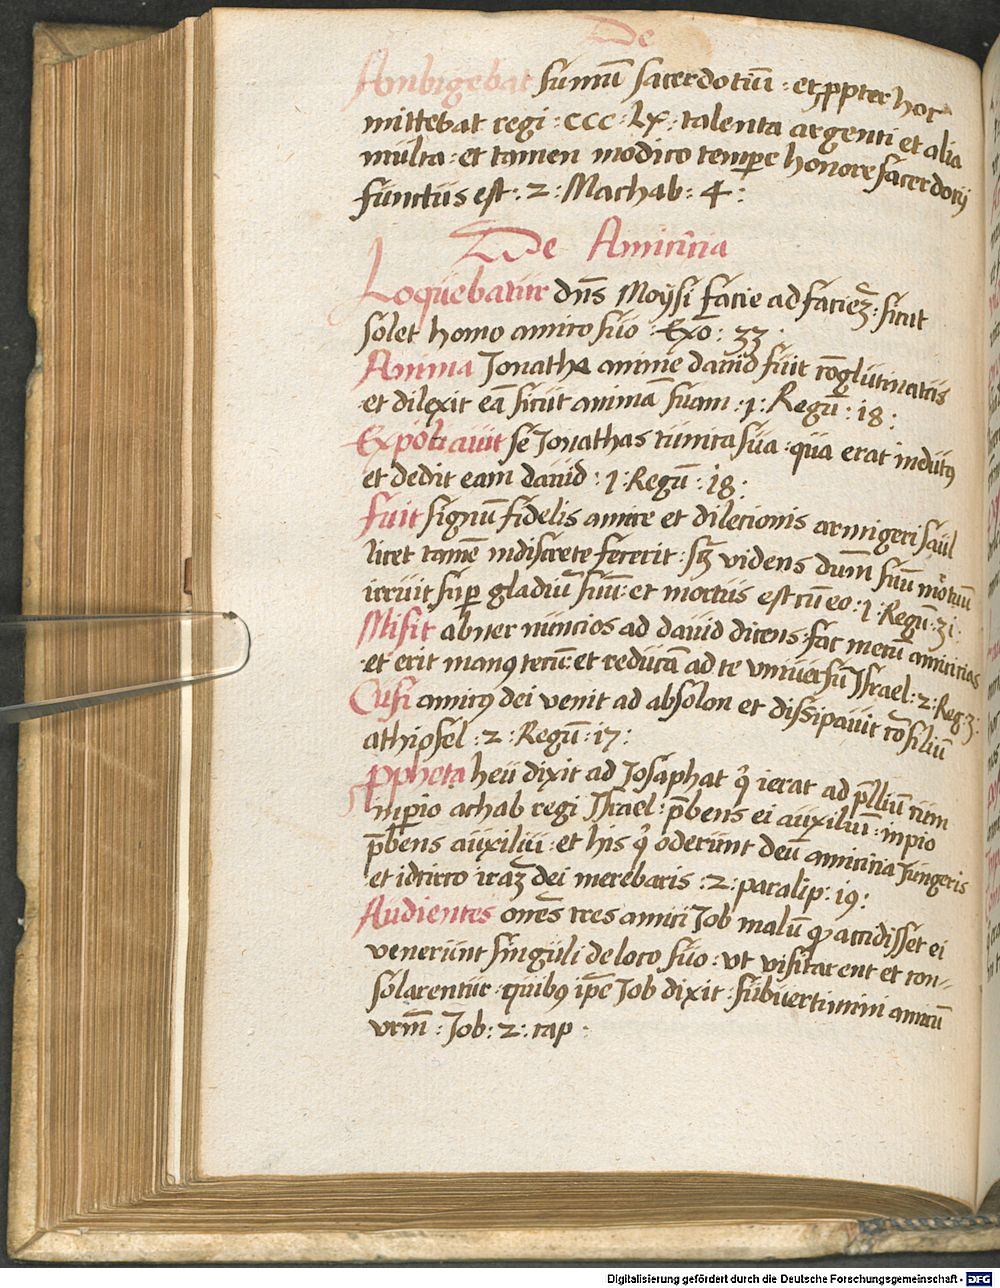 De
Ambigebat sūmū sacerdotiū : et ppter hoc
mittebat regi : ccc : Lx : talenta argenti et alia
multa : et tamen modico tempe honore sacerdotij
functus est : 2 : Machab : 4 :
De Amicitia
Loquebatur dn̄s Moÿsi facie ad faciez : sicut
solet homo amico suo : Exo : 33 :
Anima Jonathę anime dauid fuit cōglutinata
et dilexit eā sicut animā suam : 1 : Regū : 18 :
Expoliauit se Jonathas tunica sua : qua erat indutꝰ
et dedit eam dauid : 1 : Regū : 18 :
Fuit signū fidelis amice et dilectionis armigeri saul
licet tamē indiscrete fecerit : sꝫ videns dum̄ suū mortuū
irruit sup gladiū suū : et mortuus est cū eo : 1 : Regū : 31 :
Misit abner nuncios ad dauid dicens : fac mecū amicicias
et erit manꝰ tecū : et reducā ad te vniuersū Jsrael : 2 : Reg : 3 :
Cusi amicꝰ dei venit ad absolon et dissipauit cōsiliū
athipfel : 2 : Regū : 17 :
Ppheta heu dixit ad Josaphat q̄ ierat ad p̄lliū cum
impio achab regi Jsrael : p̄bens ei auxiliū : inpio
p̄bens auxiliū : et his q̄ oderunt deū amicitia Jungeris
et idcirco iraz dei merebaris : 2 : paralip : 19 :
Audientes om̄es tres amici Job malū qđ accidisset ei
venerunt singuli de loco suo : vt visitarent et con-
solarentur : quibꝰ ip̄e Job dixit : subuertimini amicū
vrm̄ : Job : 2 : cap :
Digitalisierung gefördert durch die Deutsche Forschungsgemeinschaft - DFG